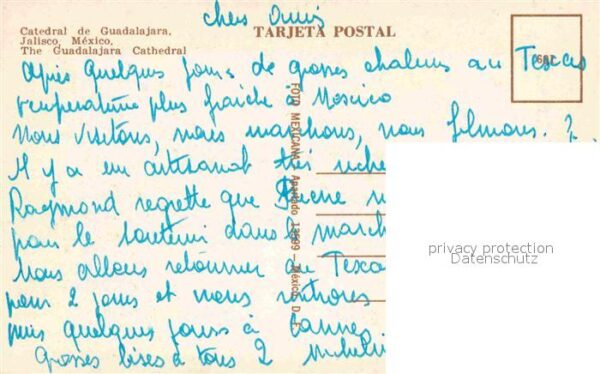 Catedral de Guadalajara,
Jalisco, México,
The Guadalajara Cathedral
TARJETA POSTAL
chers Amis
Après quelques jours de grosses chaleurs au Texas
température plus fraîche à Mexico
Nous visitons, nous marchons, nous filmons.
Il y a un artisanat très riche
Raymond regrette que Pierre n
pour le soutenir dans le march
Nous allons retourner au Texas
pour 2 jours et nous rentrons
puis quelques jours à Cannes
Grosses bises à tous 2
FOTO MEXICANA - Apartado 13609 - México, D. F.
privacy protection
Datenschutz